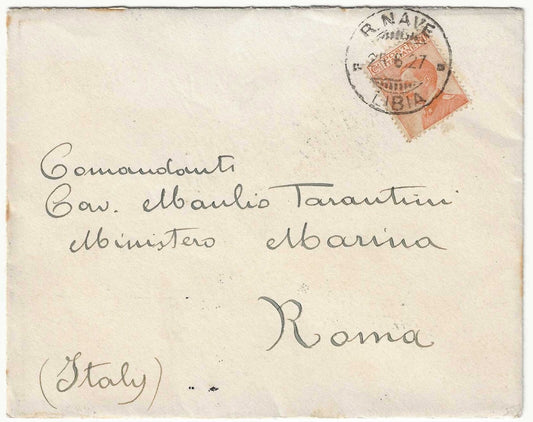 R. NAVE
6 27
LIBIA
Comandante
Cav. Manlio Tarantini
Ministero Marina
Roma
(Italy)